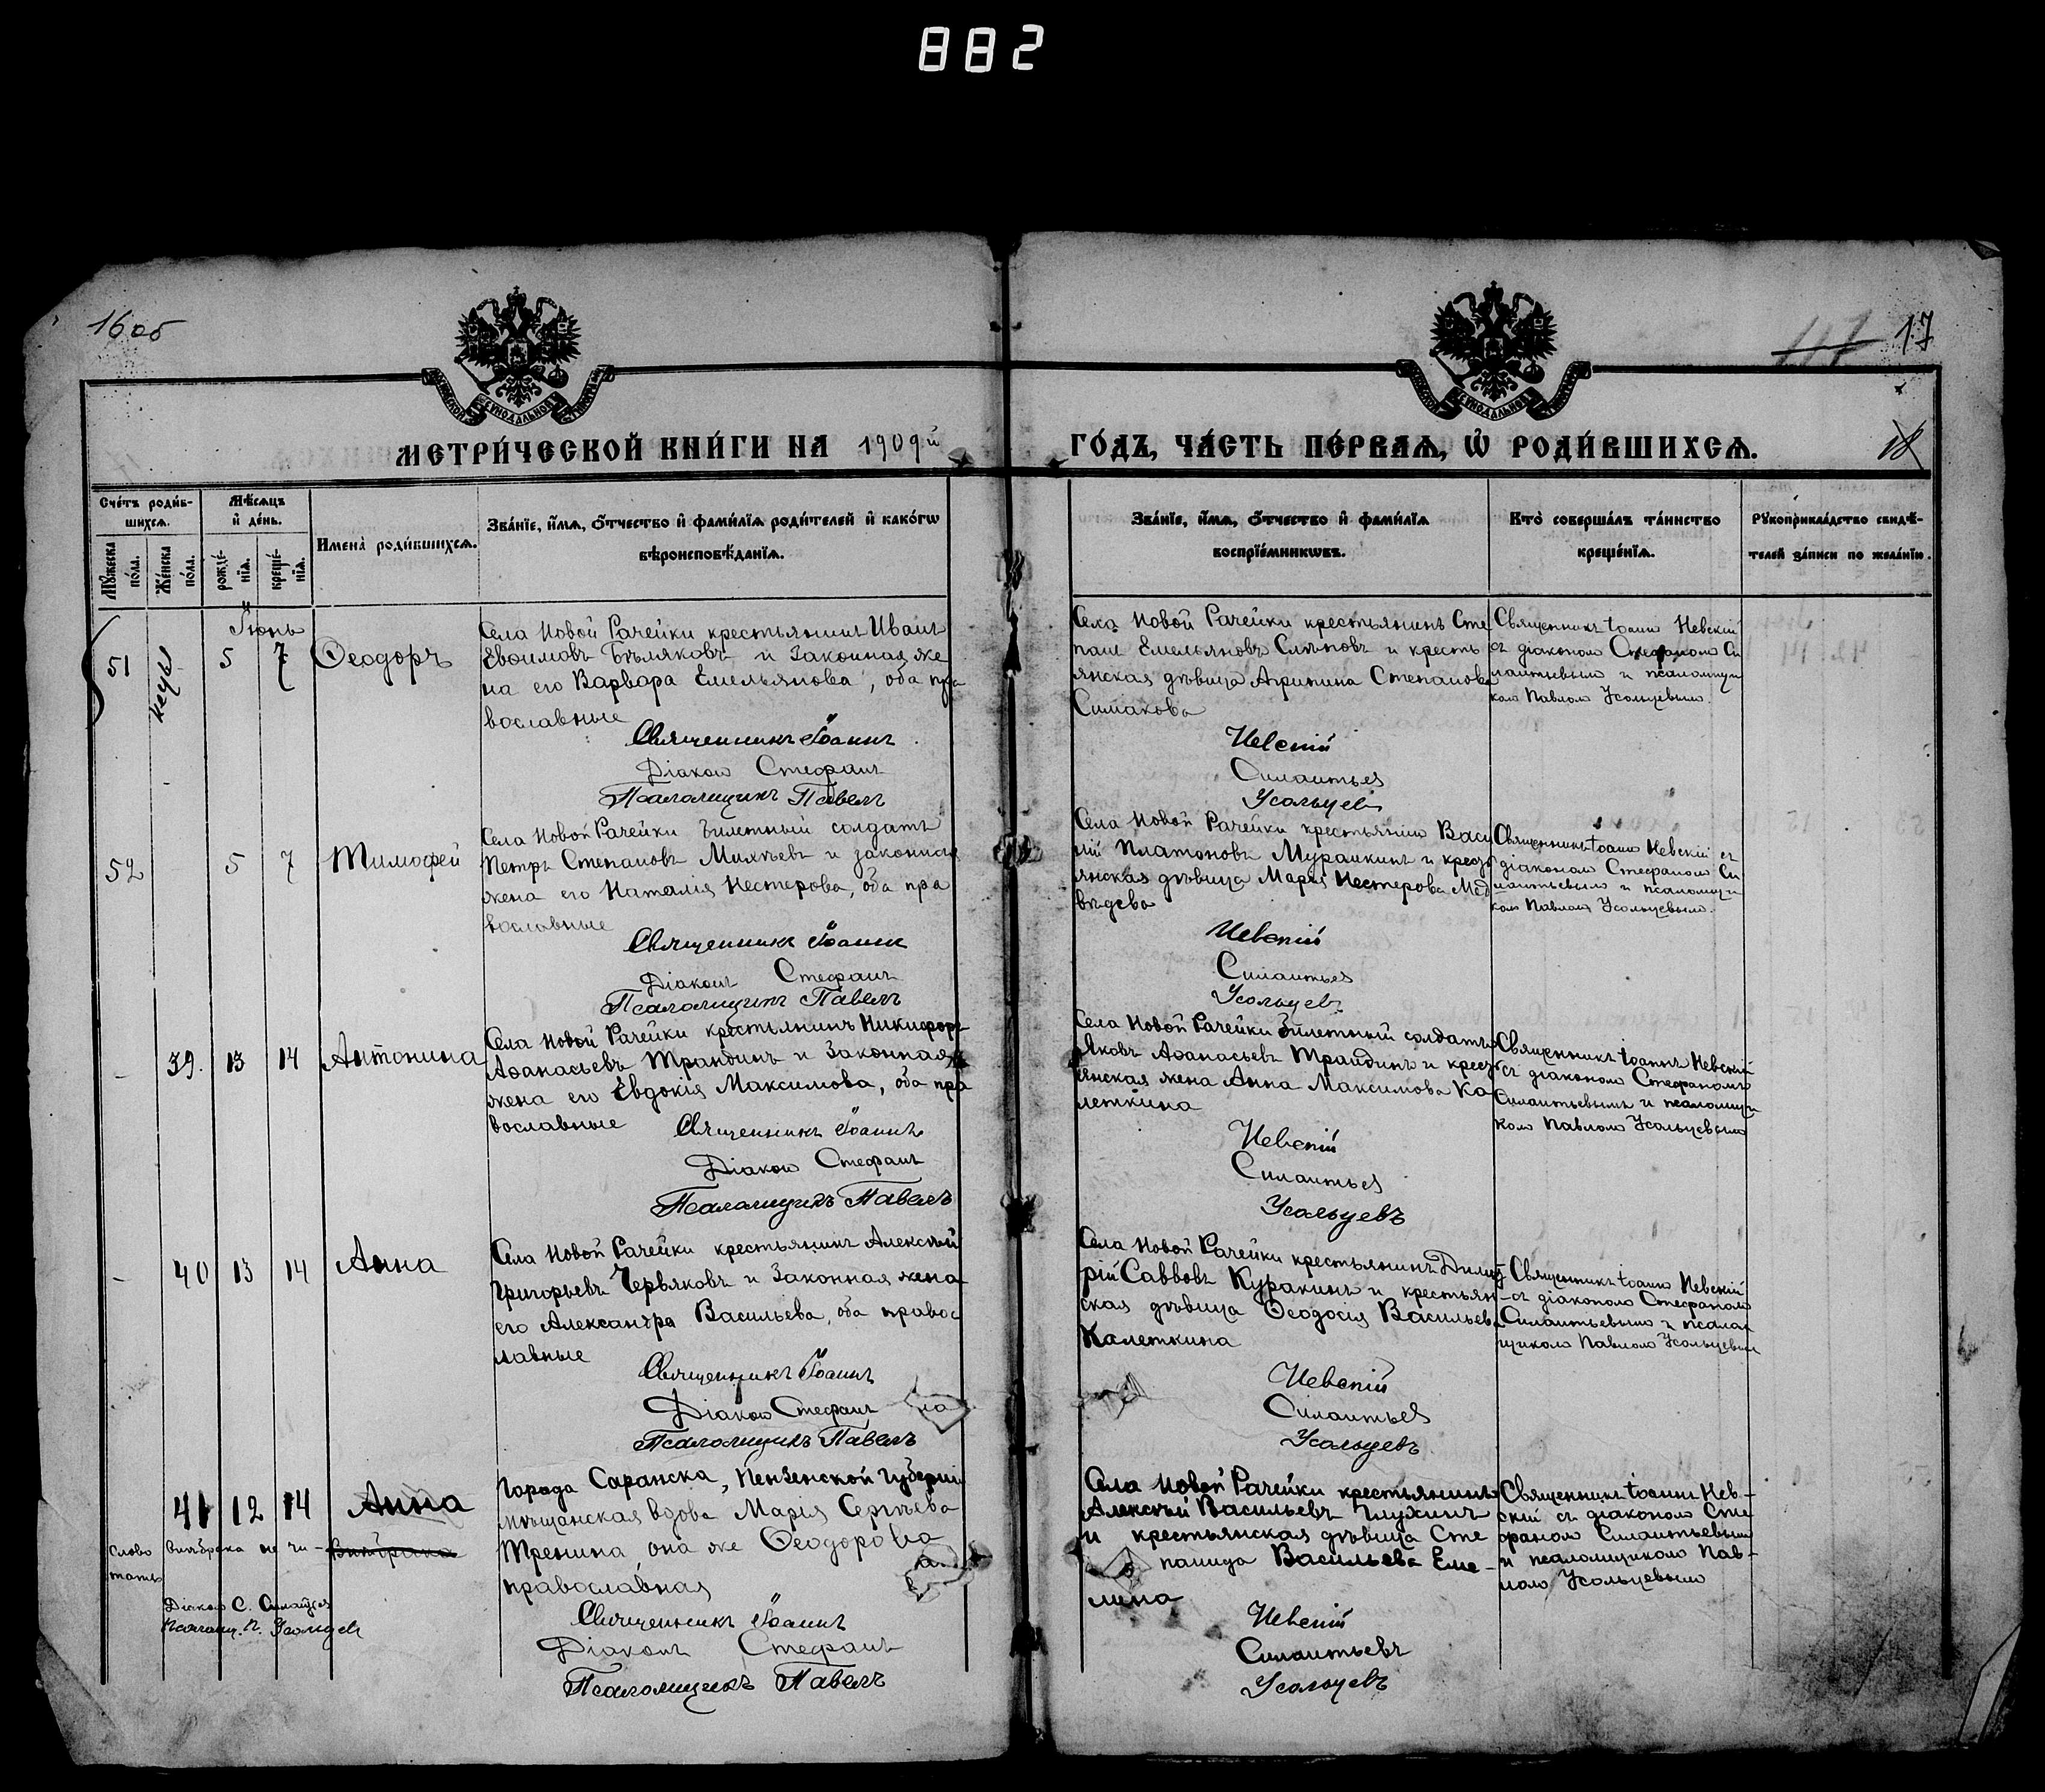 882
16 об
117 17
МЕТРИ́ЧЕСКОЙ КНИ́ГИ НА 1909й ГО́ДЪ, ЧА́СТЬ ПЕ́РВАѦ, Ѡ҆ РОДИ́ВШИХСѦ.
18
Сче́тъ роди́в-
шихсѧ.
Мꙋ́жеска по́ла.
Же́нска по́ла.
Мѣ́сѧцъ
и҆ де́нь.
рожде́-
нїѧ.
креще́-
нїѧ.
И҆мена̀ роди́вшихсѧ.
Зва́нїе, и҆́мѧ, ѻ҆́тчество и҆ фами́лїѧ роди́телей и҆ како́гѡ
вѣроисповѣ́данїѧ.
Зва́нїе, и҆́мѧ, ѻ҆́тчество и҆ фами́лїѧ
воспрїе́мникѡвъ.
Кто̀ соверша́лъ та́инство
креще́нїѧ.
Рꙋкоприкла́дство свидѣ́-
телей за́писи по жела́нїю.
Іюнь
51
5 7 Ѳеодоръ
Села Новой Рачейки крестьянинъ Иванъ
Евѳимовъ Бѣляковъ и законная же
на его Варвара Емельянова, оба пра
вославные
Священникъ Іоаннъ
Діаконъ Стефанъ
Псаломщикъ Павелъ
Села Новой Рачейки крестьянинъ Сте
панъ Емельяновъ Слѣповъ и кресть
янская дѣвица Агрипина Степанова
Симакова
Невскій
Силантьев
Усольцев
Священникъ Іоаннъ Невскій
съ діакономъ Стефаномъ Си
лантьевымъ и псаломщи
комъ Павломъ Усольцевымъ.
52 5 7 Тимофей
Села Новой Рачейки билетный солдатъ
Петръ Степановъ Михѣевъ и законная
жена его Наталія Нестерова, оба пра
вославные
Священникъ Іоаннъ
Діаконъ Стефанъ
Псаломщикъ Павелъ
Села Новой Рачейки крестьянинъ Васи
лій Платоновъ Мурашкинъ и крест
янская дѣвица Марія Нестерова Мед
вѣдева
Невскій
Силантьев
Усольцев
Священникъ Іоаннъ Невскій съ
діакономъ Стефаномъ Си
лантьевымъ и псаломщи
комъ Павломъ Усольцевымъ.
- 39. 13 14 Антонина
Села Новой Рачейки крестьянинъ Никифоръ
Аѳанасьевъ Трандинъ и законная
жена его Евдокія Максимова, оба пра
вославные
Священникъ Іоаннъ
Діаконъ Стефанъ
Псаломщикъ Павелъ
Села Новой Рачейки билетный солдатъ
Яковъ Аѳанасьевъ Трандинъ и крест
янская жена Анна Максимова Ка
леткина
Невскій
Силантьев
Усольцевъ
Священникъ Іоаннъ Невскій
съ діакономъ Стефаномъ
Силантьевымъ и псаломщи
комъ Павломъ Усольцевымъ
- 40 13 14 Анна
Села Новой Рачейки крестьянинъ Алексѣй
Григорьевъ Червяковъ и законная жена
его Александра Васильева, оба правос
лавные
Священникъ Іоаннъ
Діаконъ Стефанъ
Псаломщикъ Павелъ
Села Новой Рачейки крестьянинъ Дмит
рій Саввовъ Куракинъ и крестьян
ская дѣвица Ѳеодосія Васильева
Калеткина
Невскій
Силантьев
Усольцевъ
Священникъ Іоаннъ Невскій
съ діакономъ Стефаномъ
Силантьевымъ и псалом
щикомъ Павломъ Усольцевым
41 12 14 Анна
слово внѣбрака не чи-
тать
внѣбрака
Діаконъ С. Силантьев
Псаломщ. П. Усольцев
Города Саранска, Пензенской губерніи
мѣщанская вдова Марія Сергѣева
Тренина, она же Ѳеодорова
православная
Священникъ Іоаннъ
Діаконъ Стефанъ
Псаломщикъ Павелъ
Села Новой Рачейки крестьянинъ
Алексѣй Васильевъ Глухинъ
и крестьянская дѣвица Сте
панида Васильева Еме-
лина
Невскій
Силантьевъ
Усольцевъ
Священникъ Іоаннъ Нев-
скій съ діакономъ Сте
фаномъ Силантьевымъ
и псаломщикомъ Пав-
ломъ Усольцевымъ